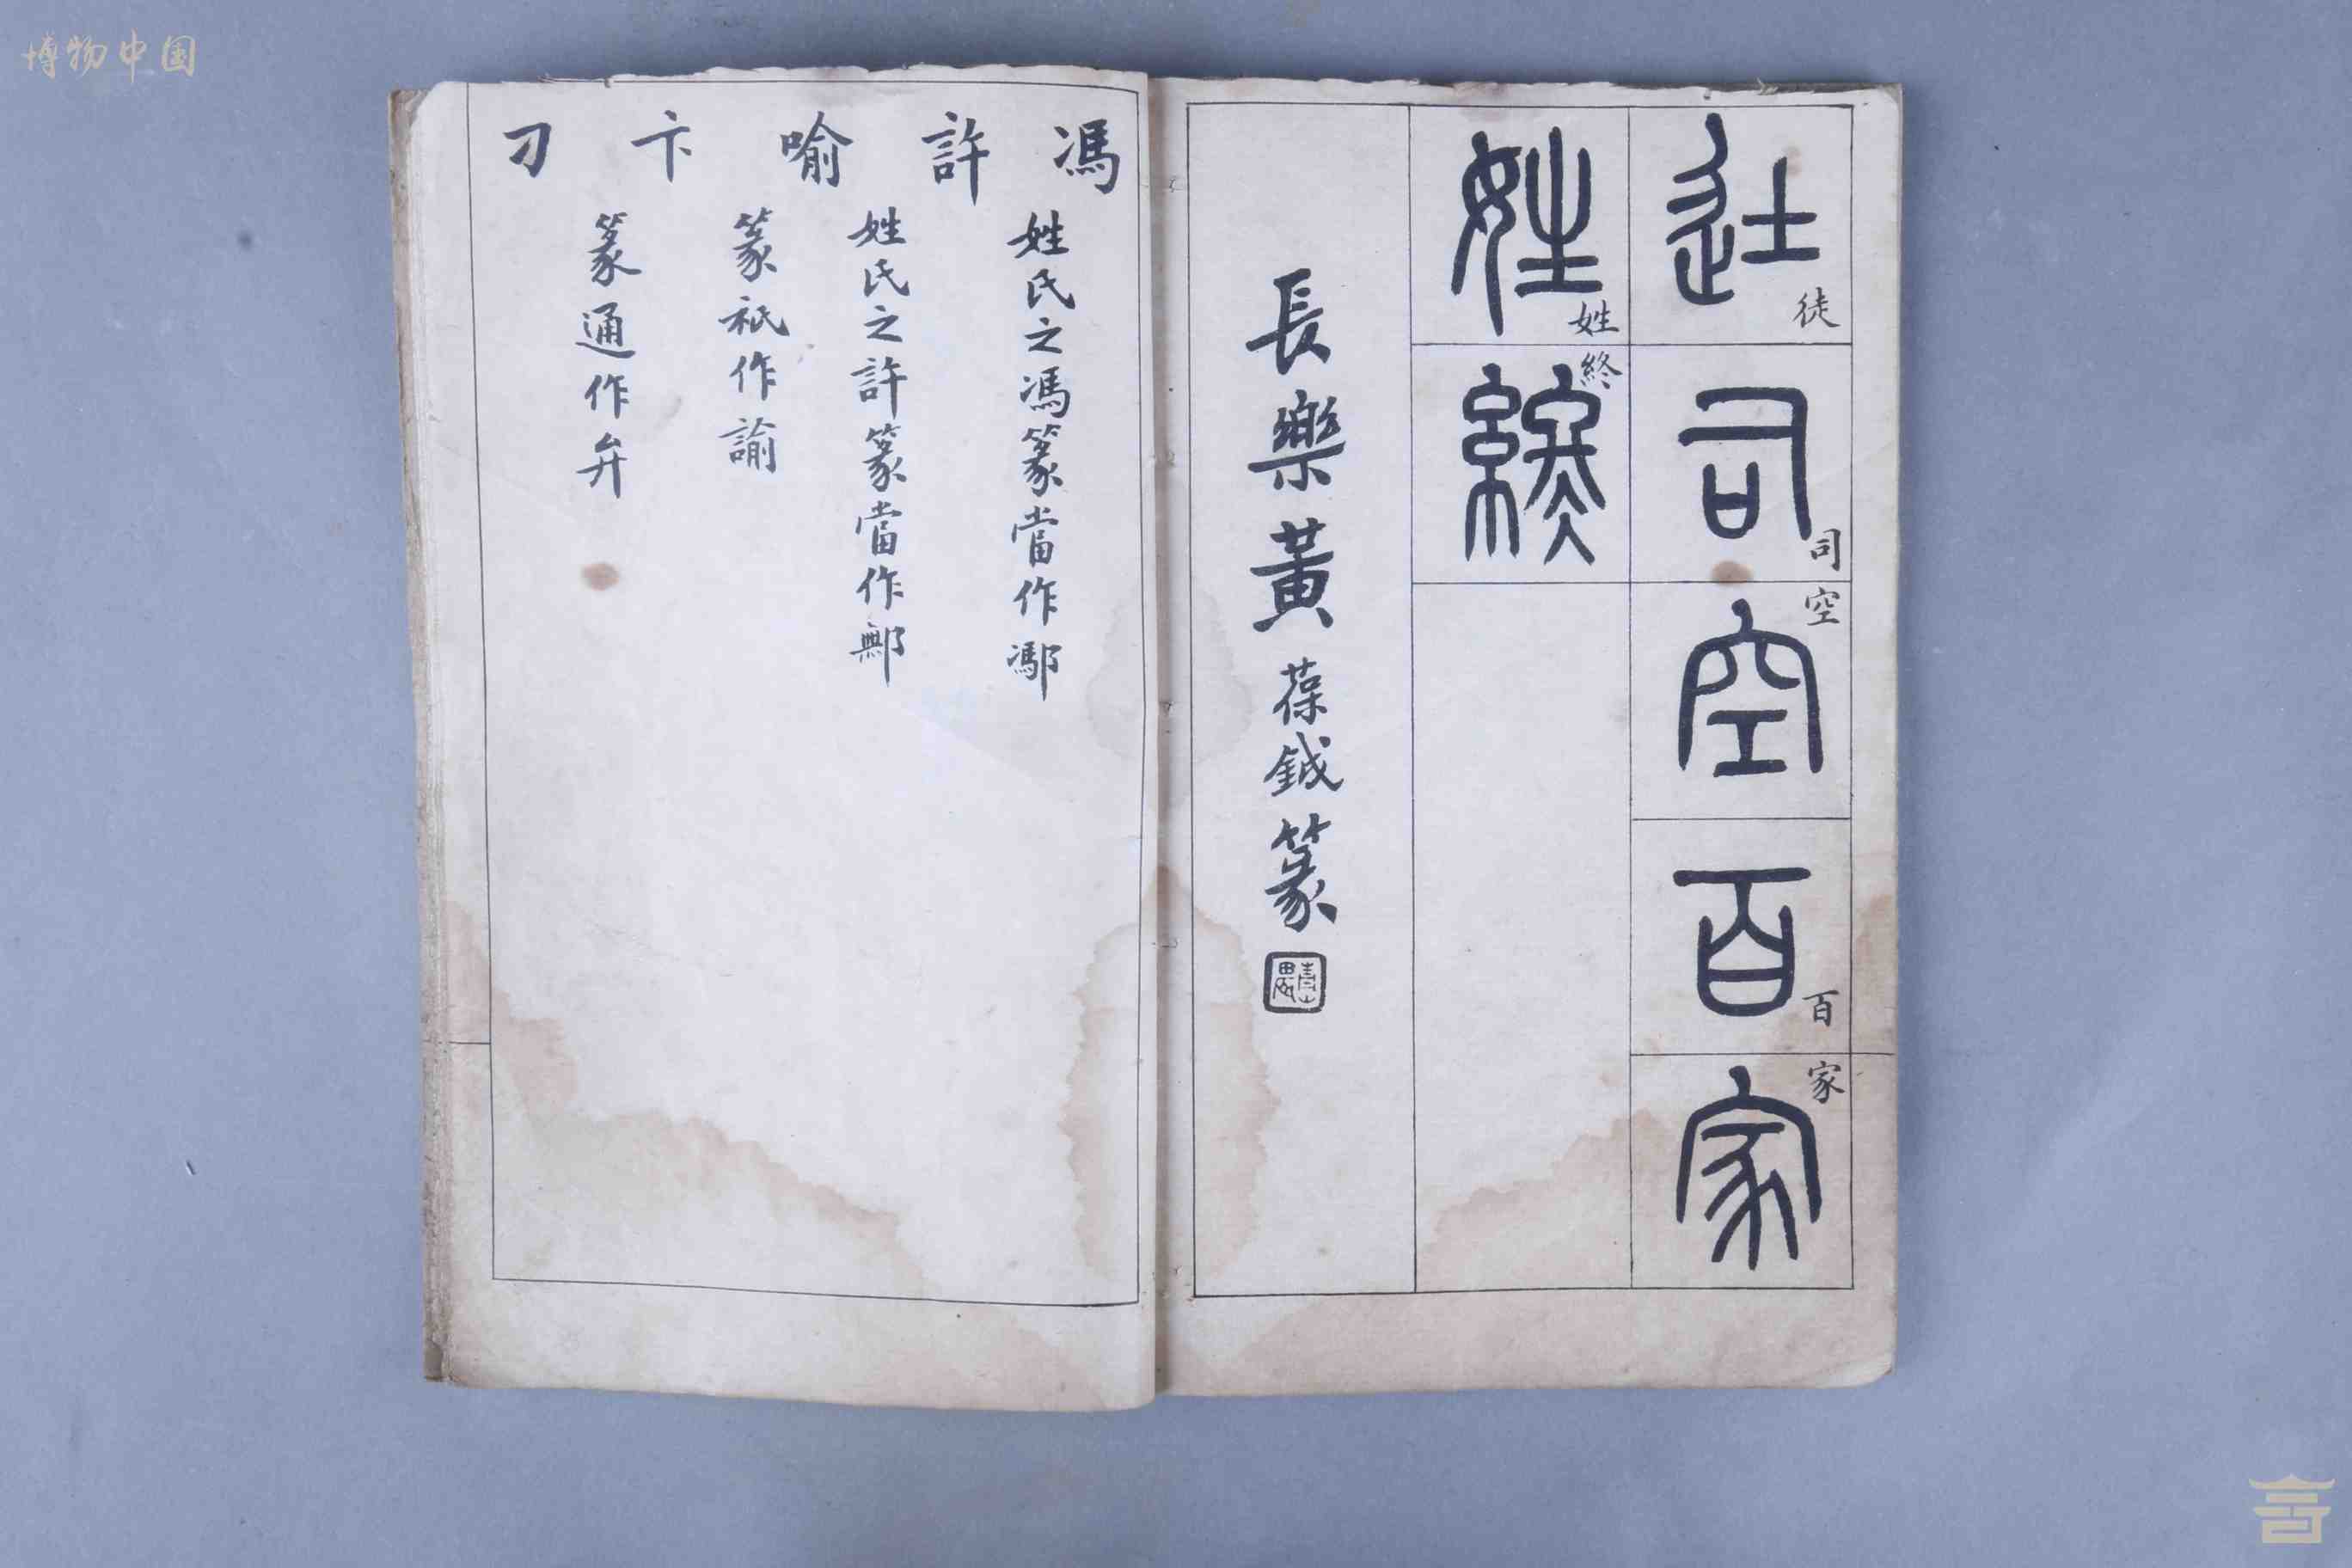 博物中国
徒司空百家
徒司空百家
姓終
姓終
長樂黃葆鉞篆
馮
姓氏之馮篆當作鄢
許
姓氏之許篆當作鄦
喻
篆祇作諭
卞
篆通作弁
刁